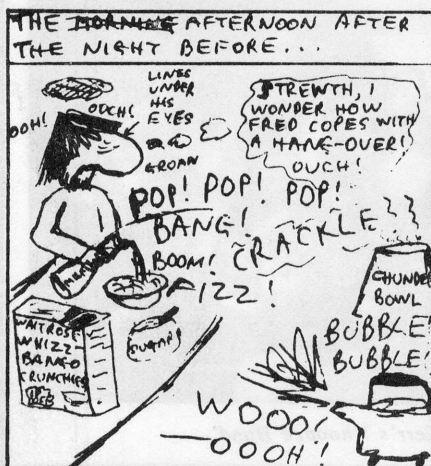 THE MORNING AFTERNOON AFTER
THE NIGHT BEFORE...
LINES
UNDER
HIS
EYES
OOH!
OUCH!
GROAN
STREWTH, I
WONDER HOW
FRED COPES WITH
A HANG-OVER!
OUCH!
POP! POP! POP!
BANG!
BOOM! CRACKLE
IZZ!
WAITROSE
WHIZZ-
BANGO
CRUNCHIES
SUGAR
CHUNDER
BOWL
BUBBLE!
BUBBLE!
WOOO!
OOOH!